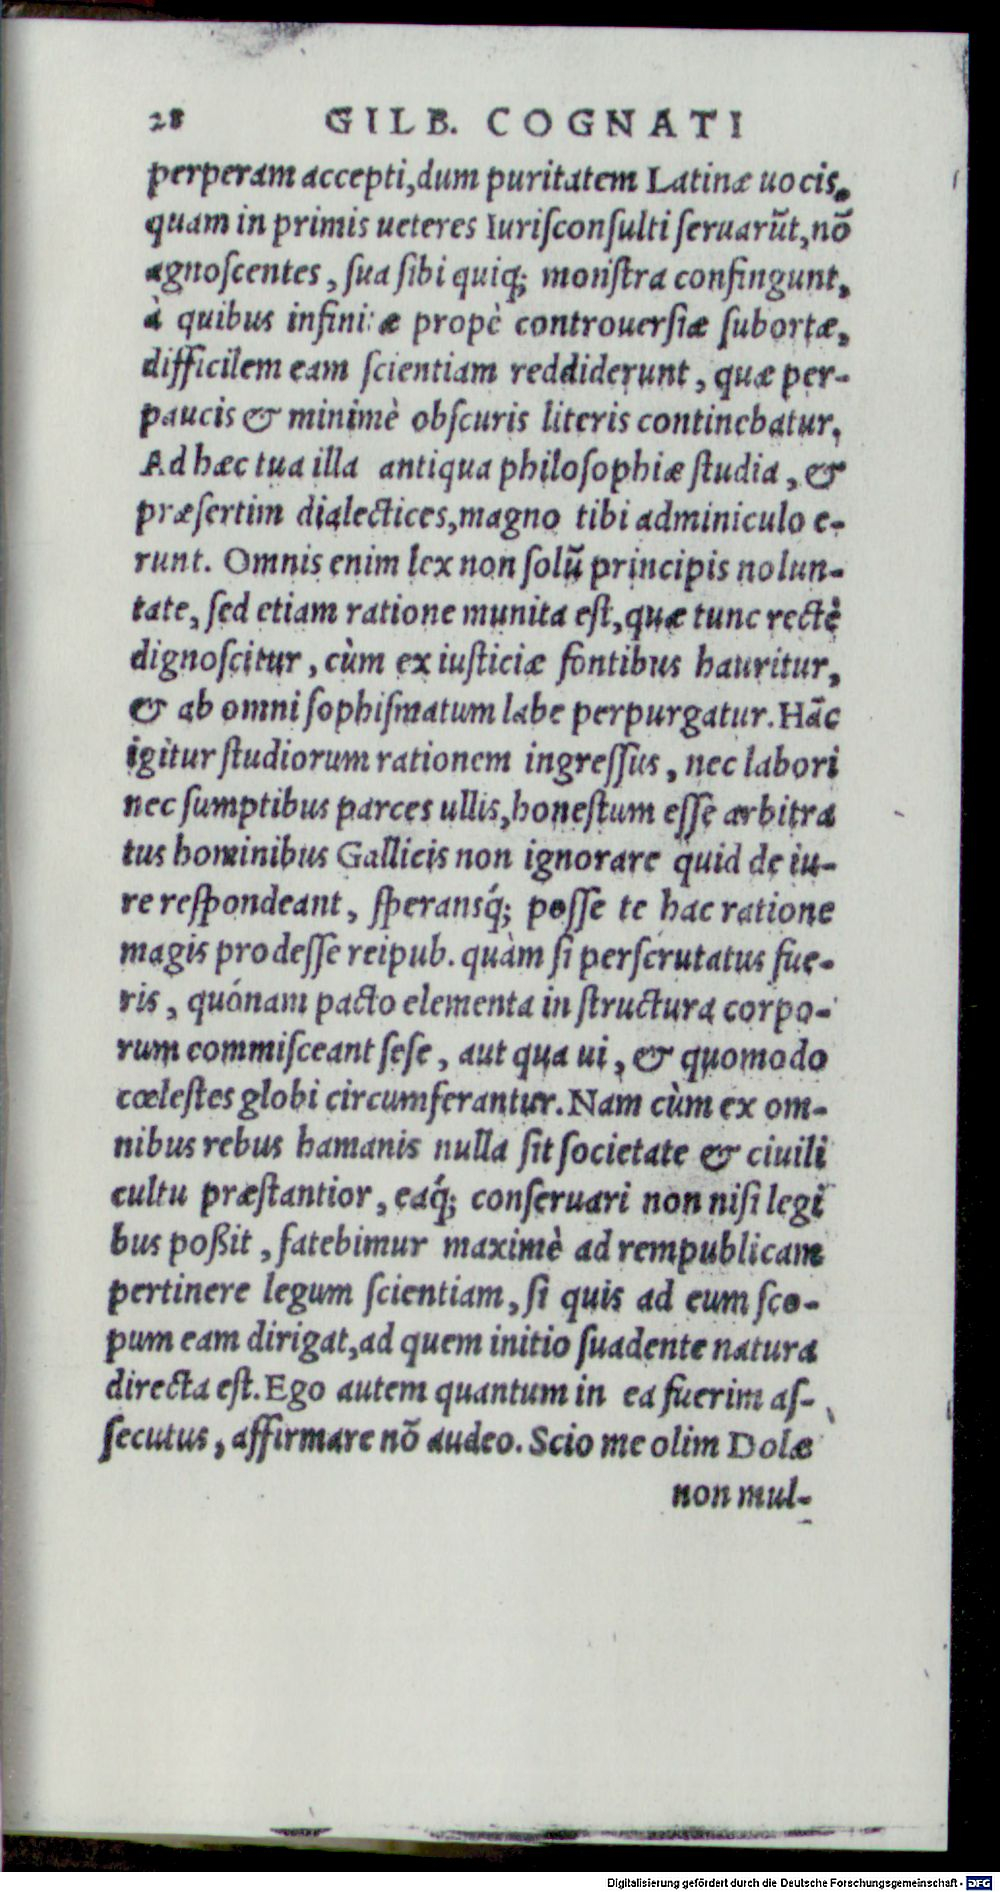 28 GILB. COGNATI
perperam accepti, dum puritatem Latinæ uocis,
quam in primis ueteres Iuriſconſulti ſeruarūt, nō
agnoſcentes, ſua ſibi quiq; monſtra confingunt,
à quibus infinitæ propè controuerſiæ ſubortæ,
difficilem eam ſcientiam reddiderunt, quæ per-
paucis & minimè obſcuris literis continebatur.
Ad hæc tua illa antiqua philoſophiæ ſtudia, &
præſertim dialectices, magno tibi adminiculo e-
runt. Omnis enim lex non ſolū principis nolun-
tate, ſed etiam ratione munita eſt, quæ tunc rectè
dignoſcitur, cùm ex iuſticiæ fontibus hauritur,
& ab omni ſophiſmatum labe perpurgatur. Hāc
igitur ſtudiorum rationem ingreſſus, nec labori
nec ſumptibus parces ullis, honeſtum eſſe arbitra
tus hominibus Gallicis non ignorare quid de iu-
re reſpondeant, ſperansq́; poſſe te hac ratione
magis prodeſſe reipub. quàm ſi perſcrutatus fue-
ris, quónam pacto elementa in ſtructura corpo-
rum commiſceant ſeſe, aut qua ui, & quomodo
cœleſtes globi circumferantur. Nam cùm ex om-
nibus rebus hamanis nulla ſit ſocietate & ciuili
cultu præſtantior, eaq́; conſeruari non niſi legi
bus poßit, fatebimur maximè ad rempublicam
pertinere legum ſcientiam, ſi quis ad eum ſco-
pum eam dirigat, ad quem initio ſuadente natura
directa eſt. Ego autem quantum in ea fuerim aſ-
ſecutus, affirmare nō audeo. Scio me olim Dolæ
non mul-
Digitalisierung gefördert durch die Deutsche Forschungsgemeinschaft - DFG